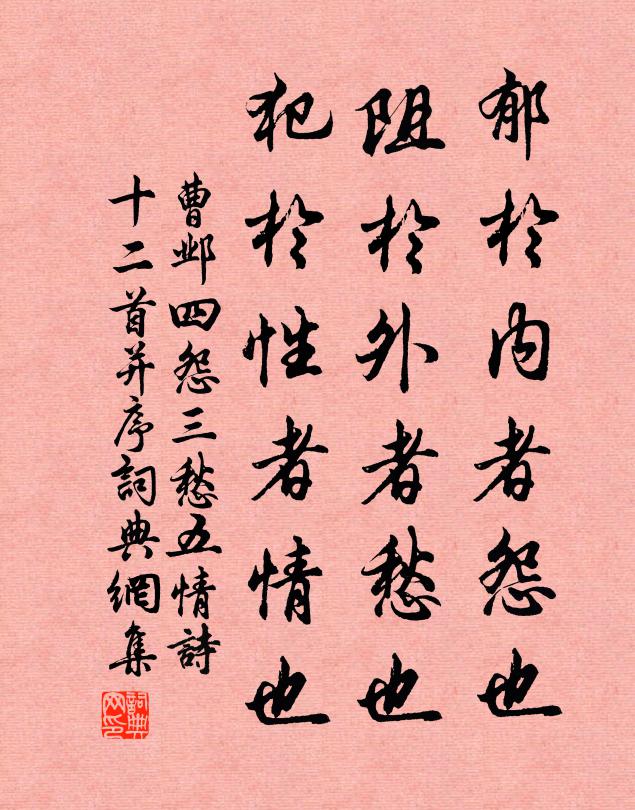 郁於内者怨也
阻於外者愁也
犯於性者情也
曹邺四怨三愁五情詩
十二首并序詞典網集
詞典
网印